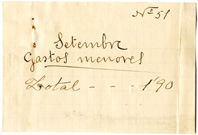 Nº 51
Setembre
Gastos menores
Total - - - 1'90